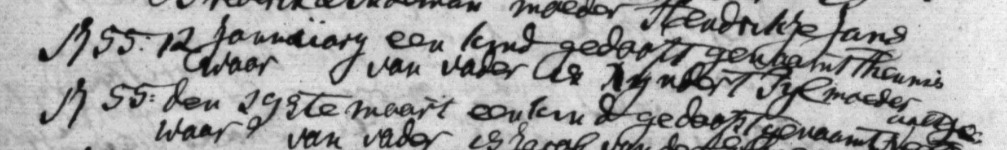 moeder Hendrikje Jans
1755: 12 Januüary een kind gedoopt genaamt Theunis
waar van vader is Reyndert Tyl moeder aaltje:
1755: den 29ste maart een kind gedoopt genaamt
waar van vader is Jacob van de